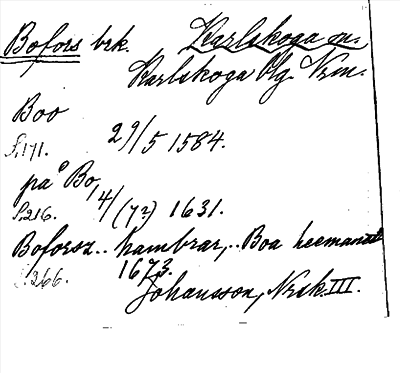 Bofors brk. Karlskoga sn.
Karlskoga blg. Vrm.
Boo
s. 171. 29/5 1584.
på Bo,
s. 216. 4/(7?) 1631.
Boforsz.. hambrar,.. Boa
s. 266. 1673.
Johansson, Nrsk. III.